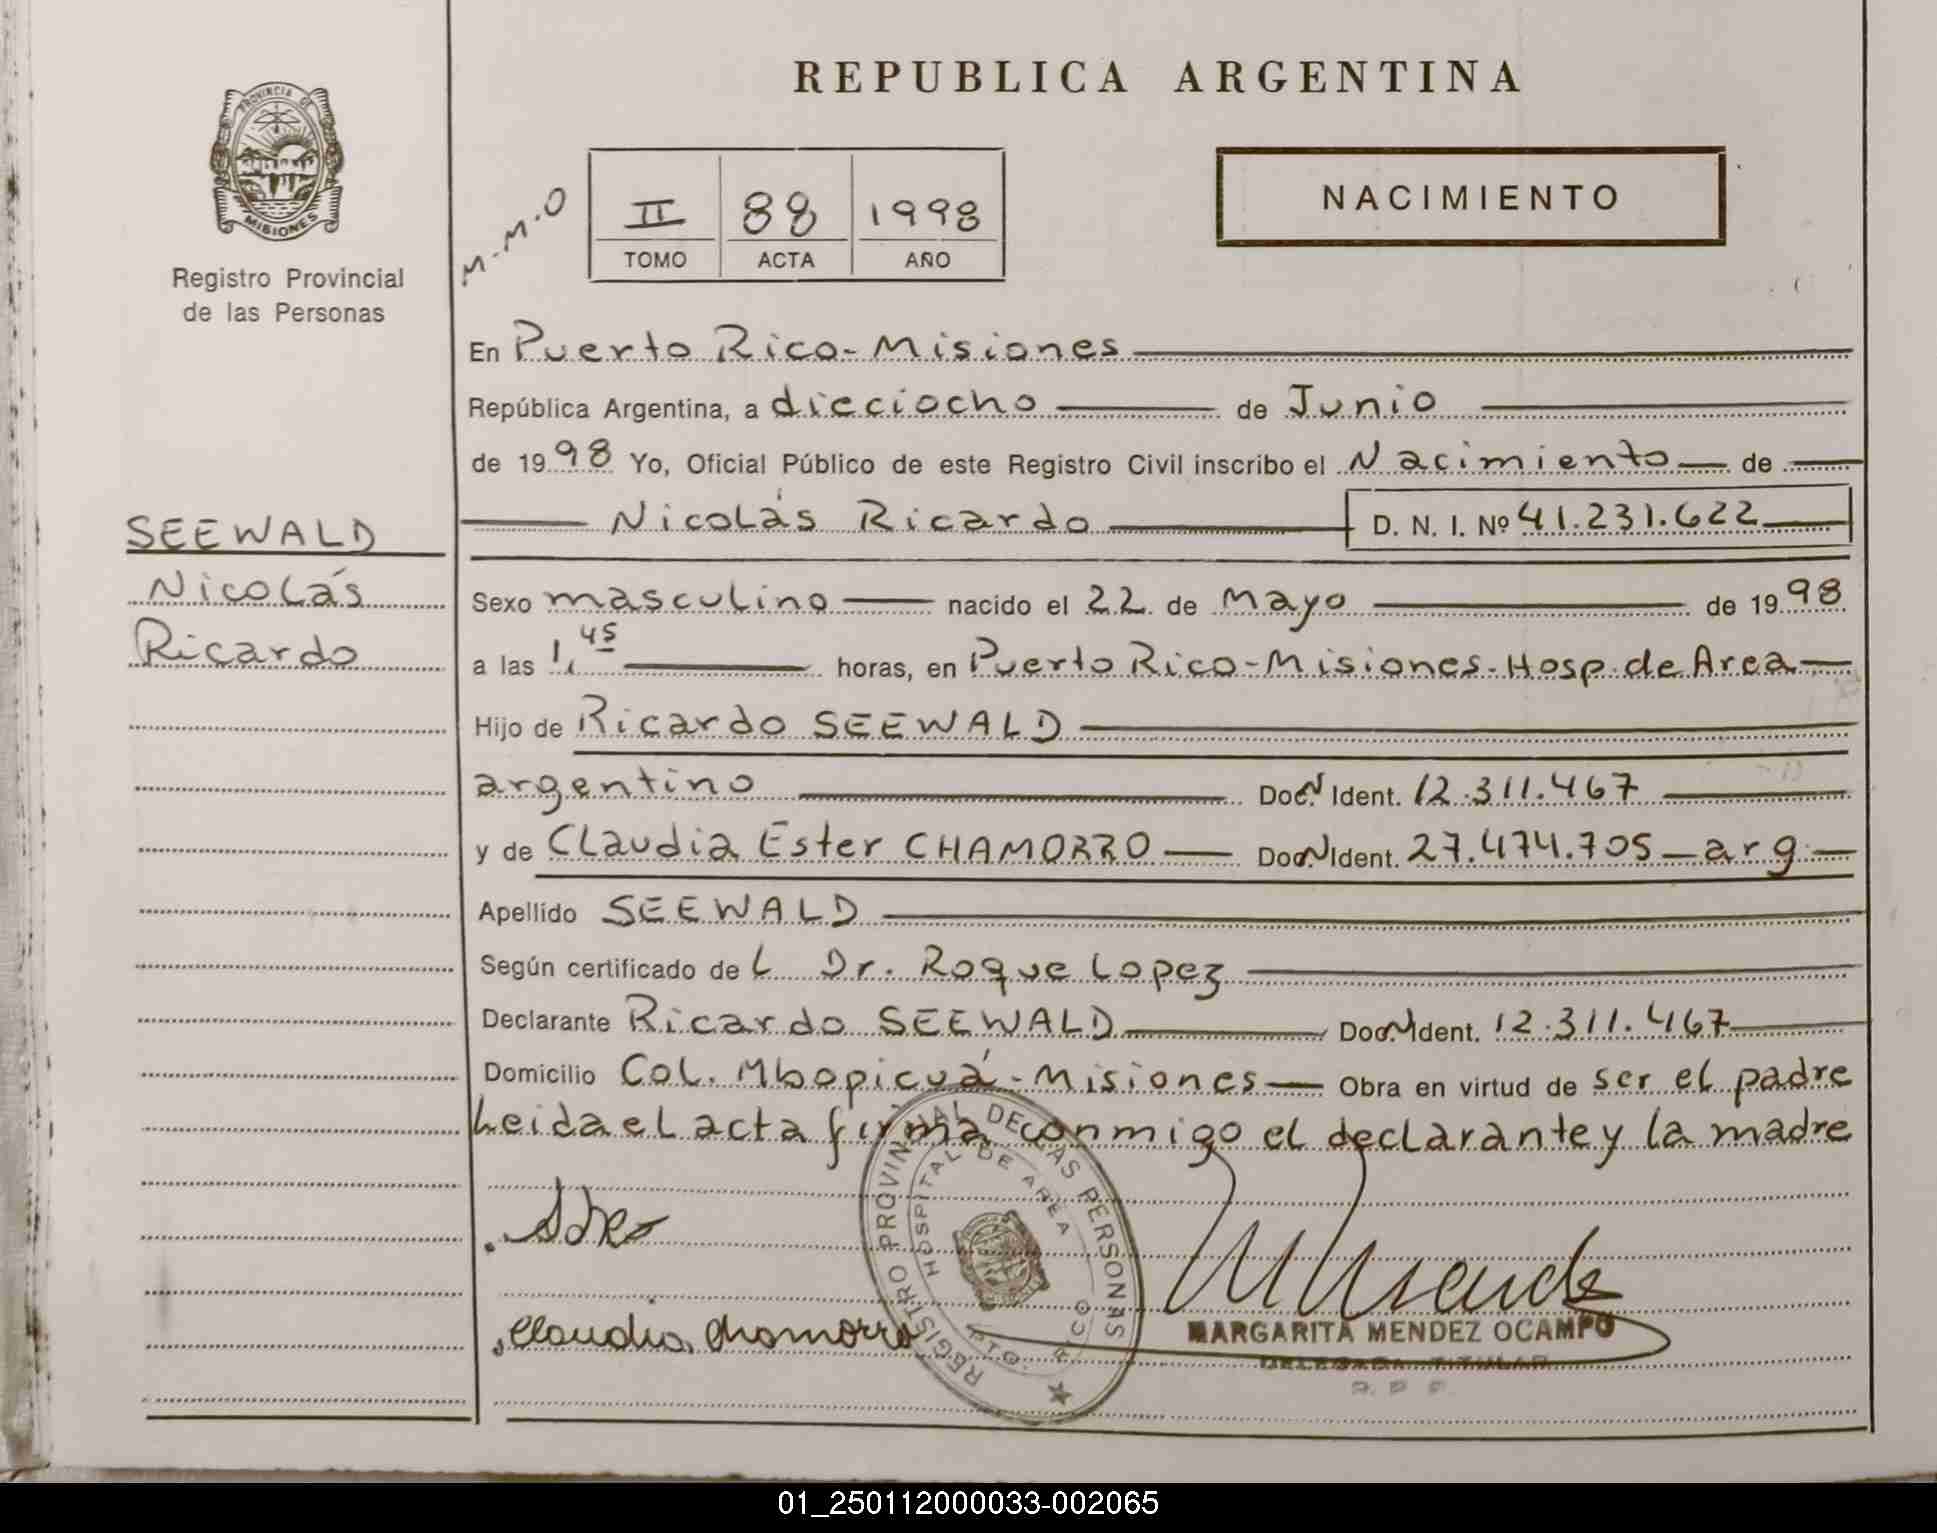 REPUBLICA ARGENTINA
PROVINCIA DE
MISIONES
Registro Provincial
de las Personas
M.M.O
II 88 1998
TOMO ACTA AÑO
NACIMIENTO
En Puerto Rico-Misiones
República Argentina, a dieciocho de Junio
de 1998 Yo, Oficial Público de este Registro Civil inscribo el Nacimiento de
Nicolás Ricardo D. N. I. Nº 41.231.622
SEEWALD
Nicolás
Ricardo
Sexo masculino nacido el 22 de Mayo de 1998
a las 1,45 horas, en Puerto Rico-Misiones-Hosp.de Area
Hijo de Ricardo SEEWALD
argentino Doc. N Ident. 12.311.467
y de Claudia Ester CHAMORRO Doc. N Ident. 27.474.705 - arg.
Apellido SEEWALD
Según certificado del Dr. Roque Lopez
Declarante Ricardo SEEWALD Doc. N Ident. 12.311.467
Domicilio Col. Mbopicuá-Misiones Obra en virtud de ser el padre
Leida el acta firma conmigo el declarante y la madre
REGISTRO PROVINCIAL DE LAS PERSONAS
HOSPITAL DE AREA
PTO. RICO
Claudia Chamorro
MARGARITA MENDEZ OCAMPO
DELEGADA TITULAR
01_250112000033-002065